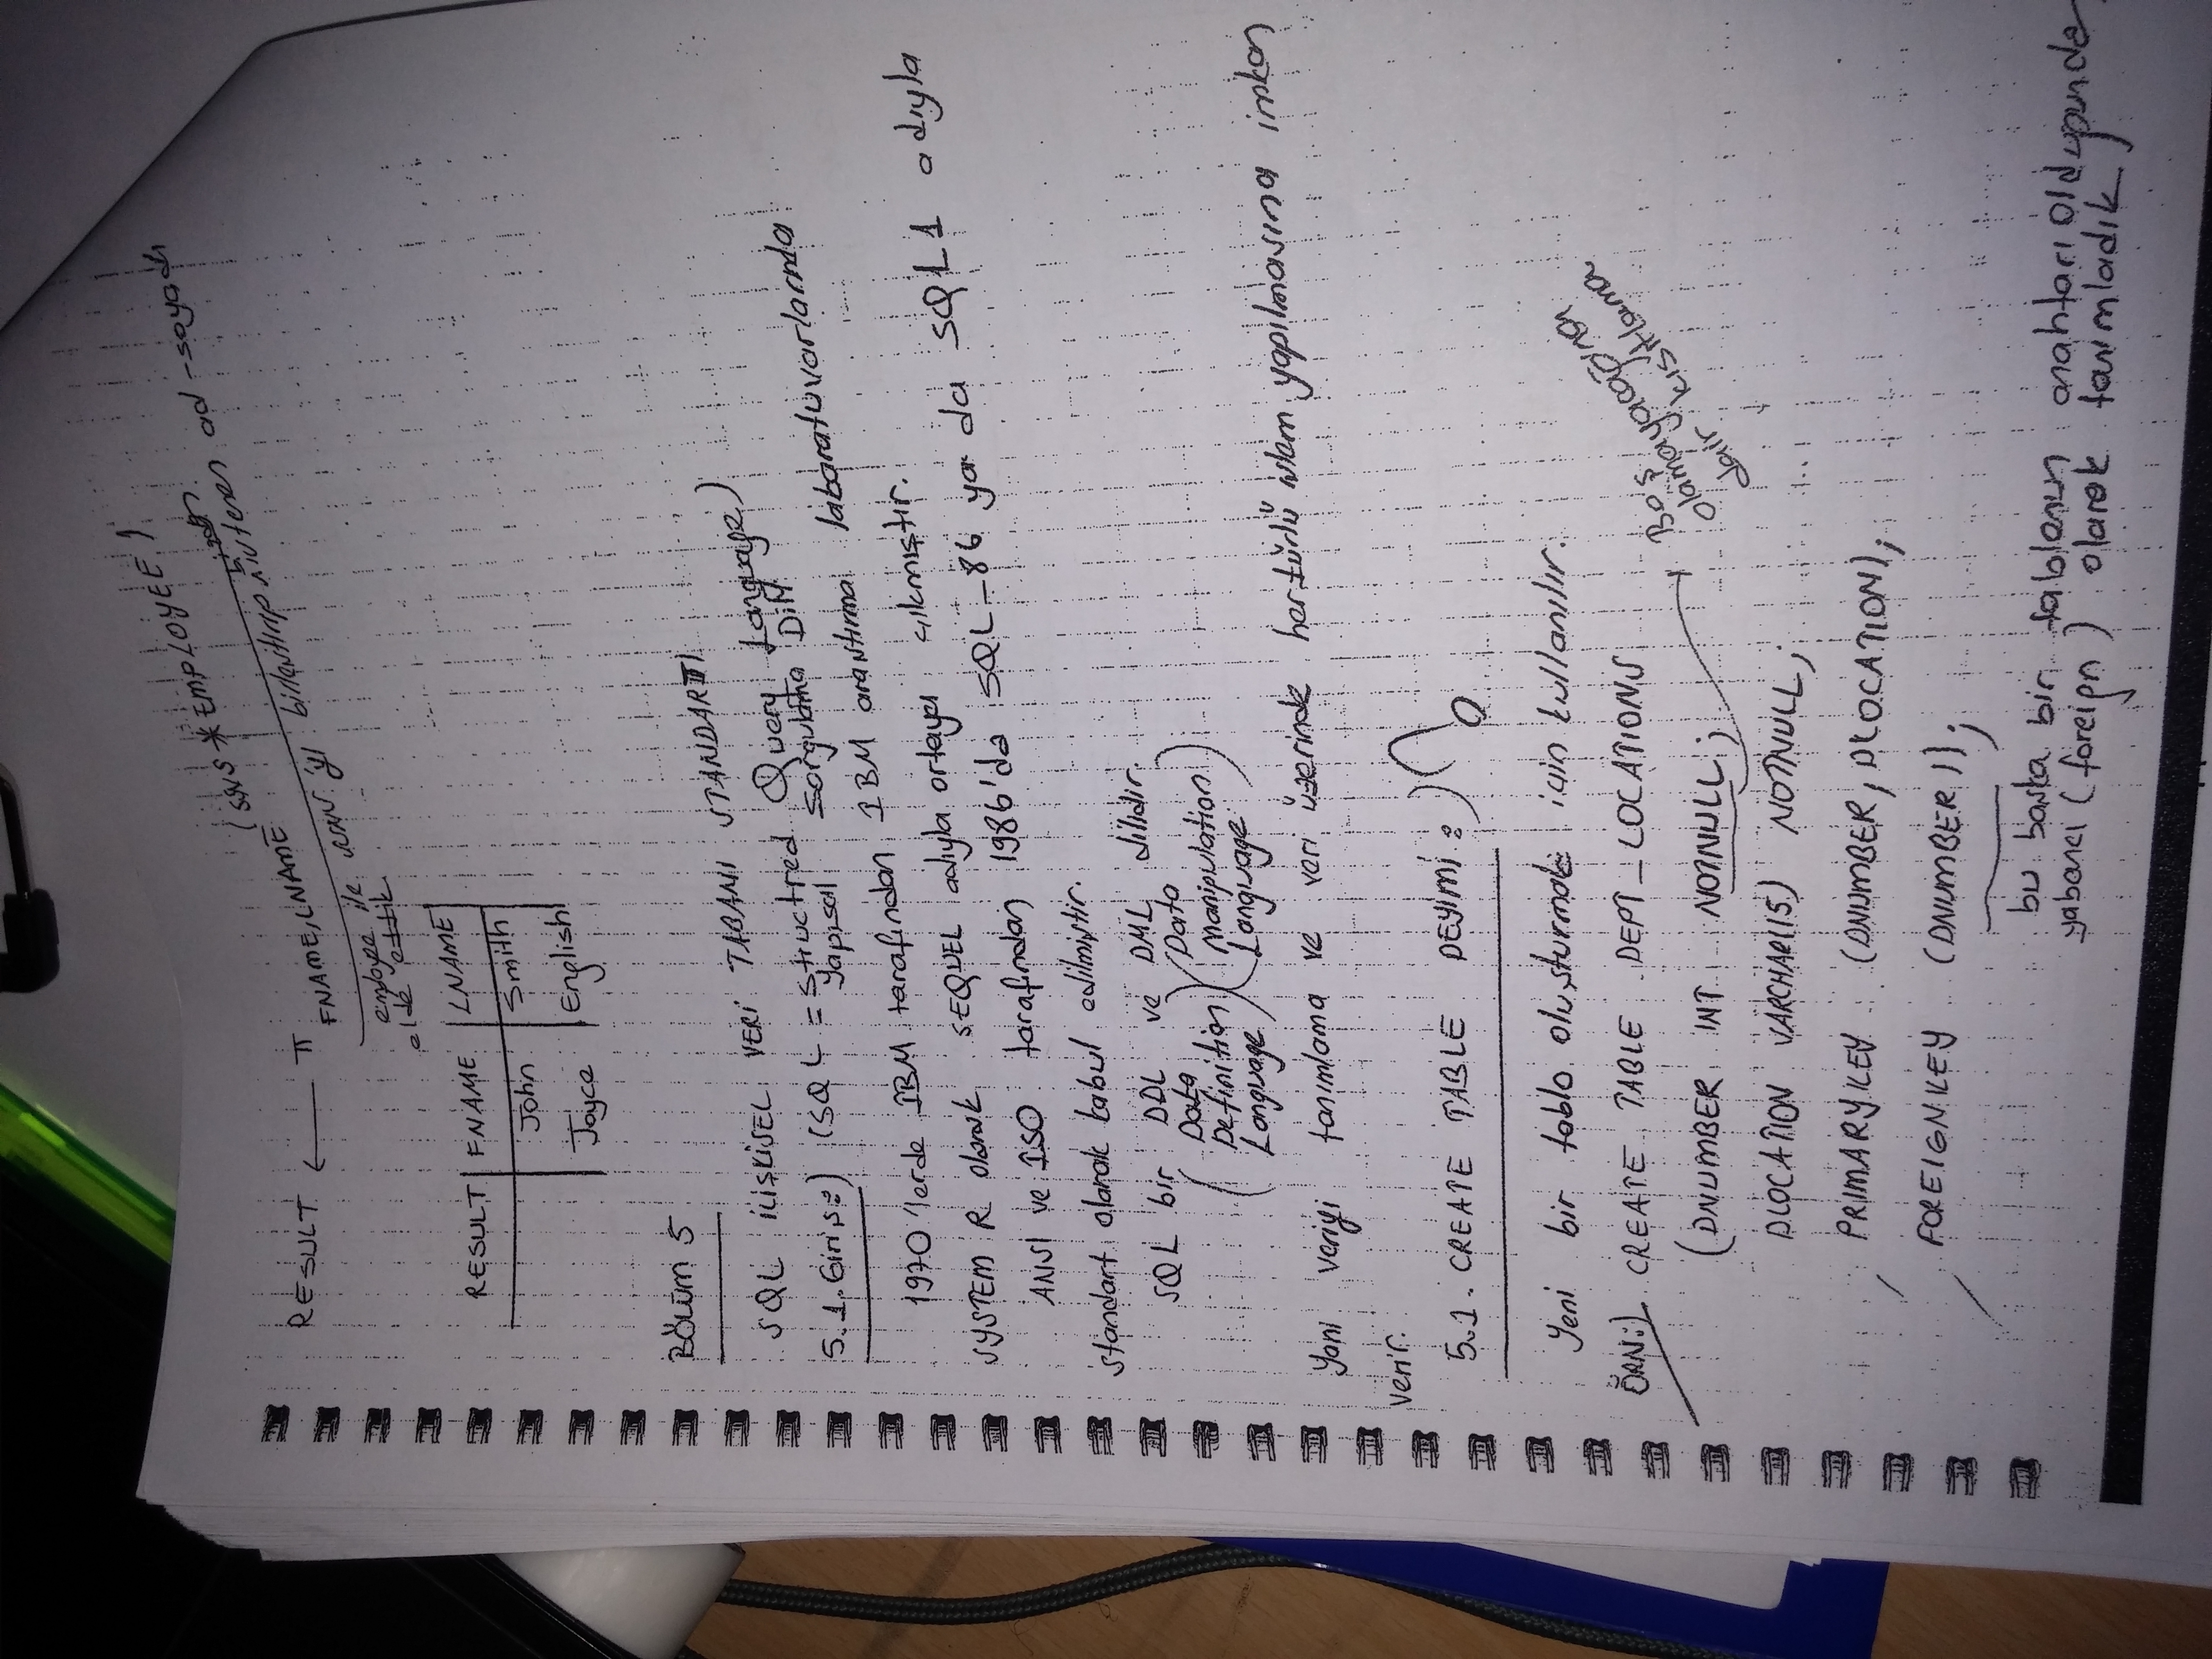 RESULT ← π FNAME, LNAME (SNS * EMPLOYEE)
employee ile SSNS 'yi birleştirip ad-soyadı
elde ettik
RESULT FNAME LNAME
John Smith
Joyce English
BÖLÜM 5
SQL İLİŞKİSEL VERİ TABANI STANDARTI
5.1. Giriş:) (SQL = Structred Query Language)
Yapısal Sorgulama Dili
1970'lerde IBM tarafından IBM araştırma labaratuvarlarında
SYSTEM R olarak SEQUEL adıyla ortaya çıkmıştır.
ANSI ve ISO tarafından 1986'da SQL_86 ya da SQL1 adıyla
standart olarak kabul edilmiştir.
SQL bir DDL ve DML dilidir.
(Data (Data
Definition Manipulation
Language) Language)
Yani veriyi tanımlama ve veri üzerinde hertürlü işlem yapılmasına imkan
verir.
5.1. CREATE TABLE DEYİMİ:)
Yeni bir tablo oluşturmak için kullanılır.
ÖRN:) CREATE TABLE DEPT_LOCATIONS
(DNUMBER INT NOTNULL;
Boş
olamayacağına
dair kısıtlama
DLOCATION VARCHAR(15) NOTNULL;
PRIMARYKEY (DNUMBER, DLOCATION);
FOREIGNKEY (DNUMBER));
bu başka bir tablonun anahtarı olduğunda
yabancı (foreign) olarak tanımladık